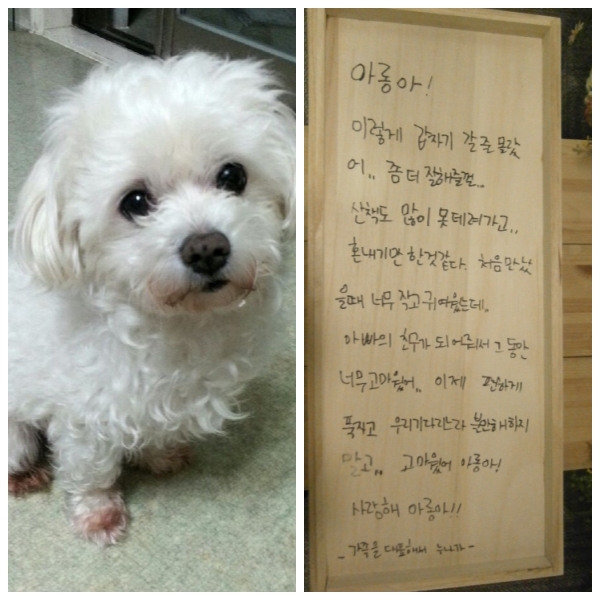 아롱아!
이렇게 갑자기 갈줄 몰랐
어.. 좀 더 잘해줄껄..
산책도 많이 못데려가고..
혼내기만 한것같다. 처음만났
을때 너무 작고 귀여웠는데..
아빠의 친구가 되어줘서 그동안
너무고마웠어.. 이제 편하게
푹자고 우리기다리느라 불안해하지
말고.. 고마웠어 아롱아!
사랑해 아롱아!!
- 가족을 대표해서 누나가 -